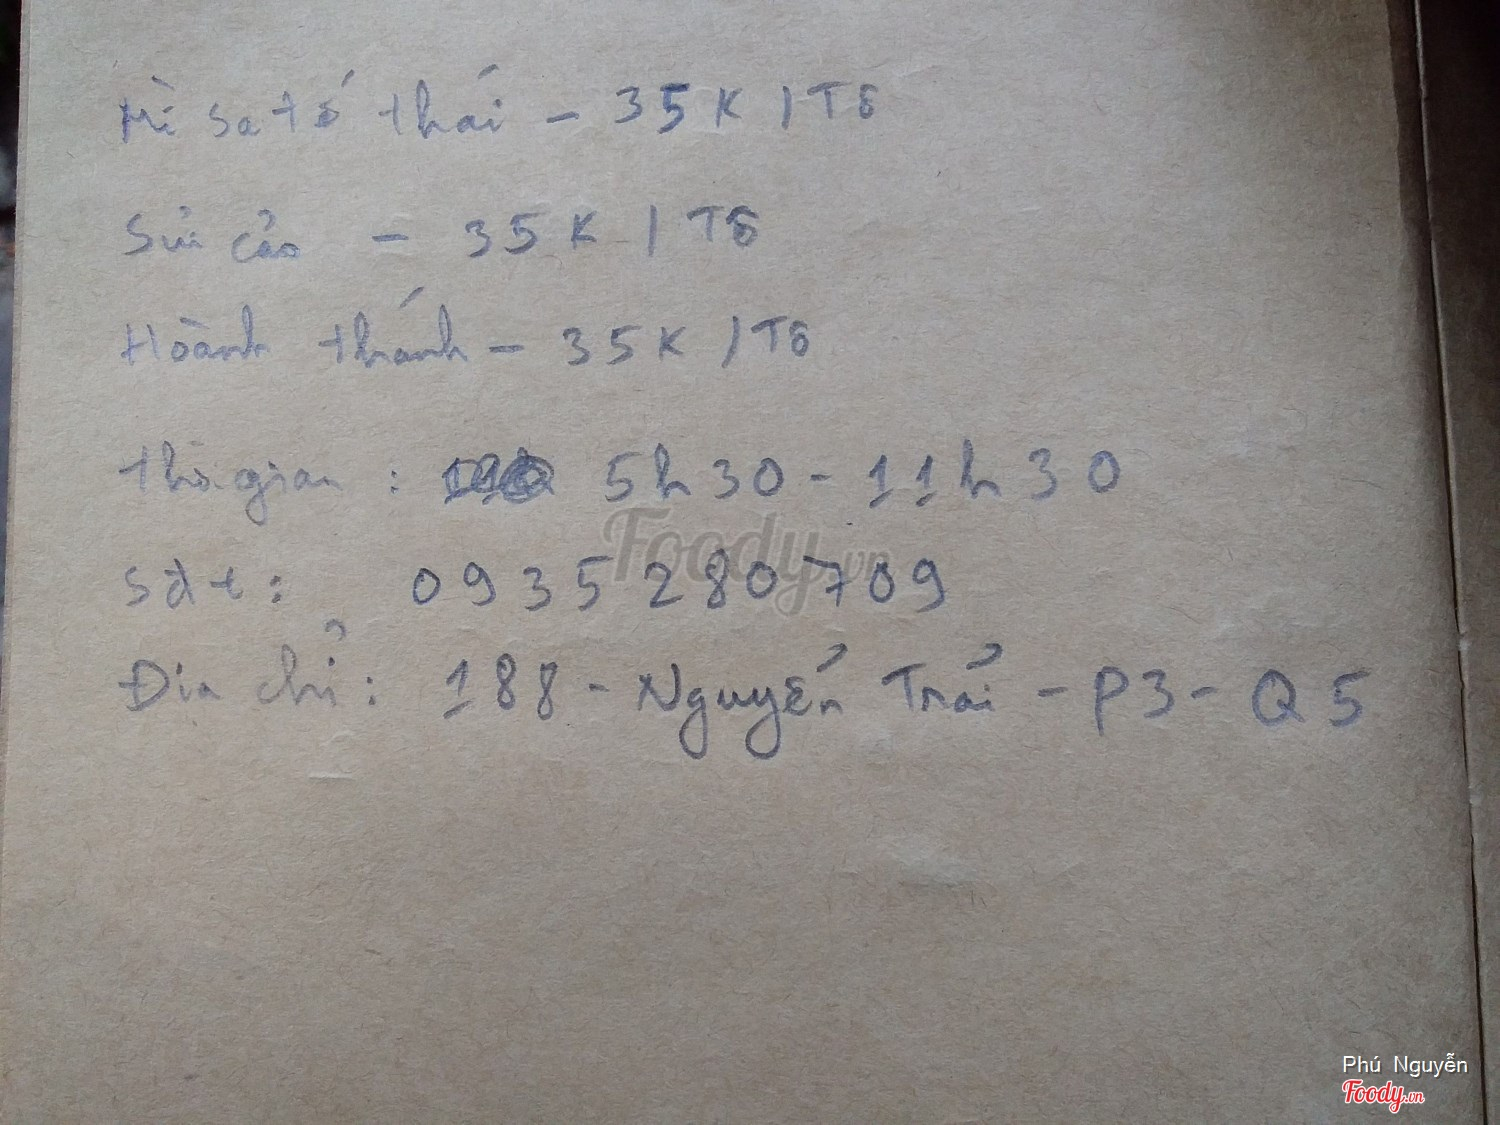 Mì sa tế thái - 35K / Tô
Sủi cảo - 35K / Tô
Hoành thánh - 35K / Tô
Thời gian : 5h30 - 11h30
Sđt : 0935280709
Foody.vn
Địa chỉ : 188 - Nguyễn Trãi - P3 - Q5
Phú Nguyễn
Foody.vn